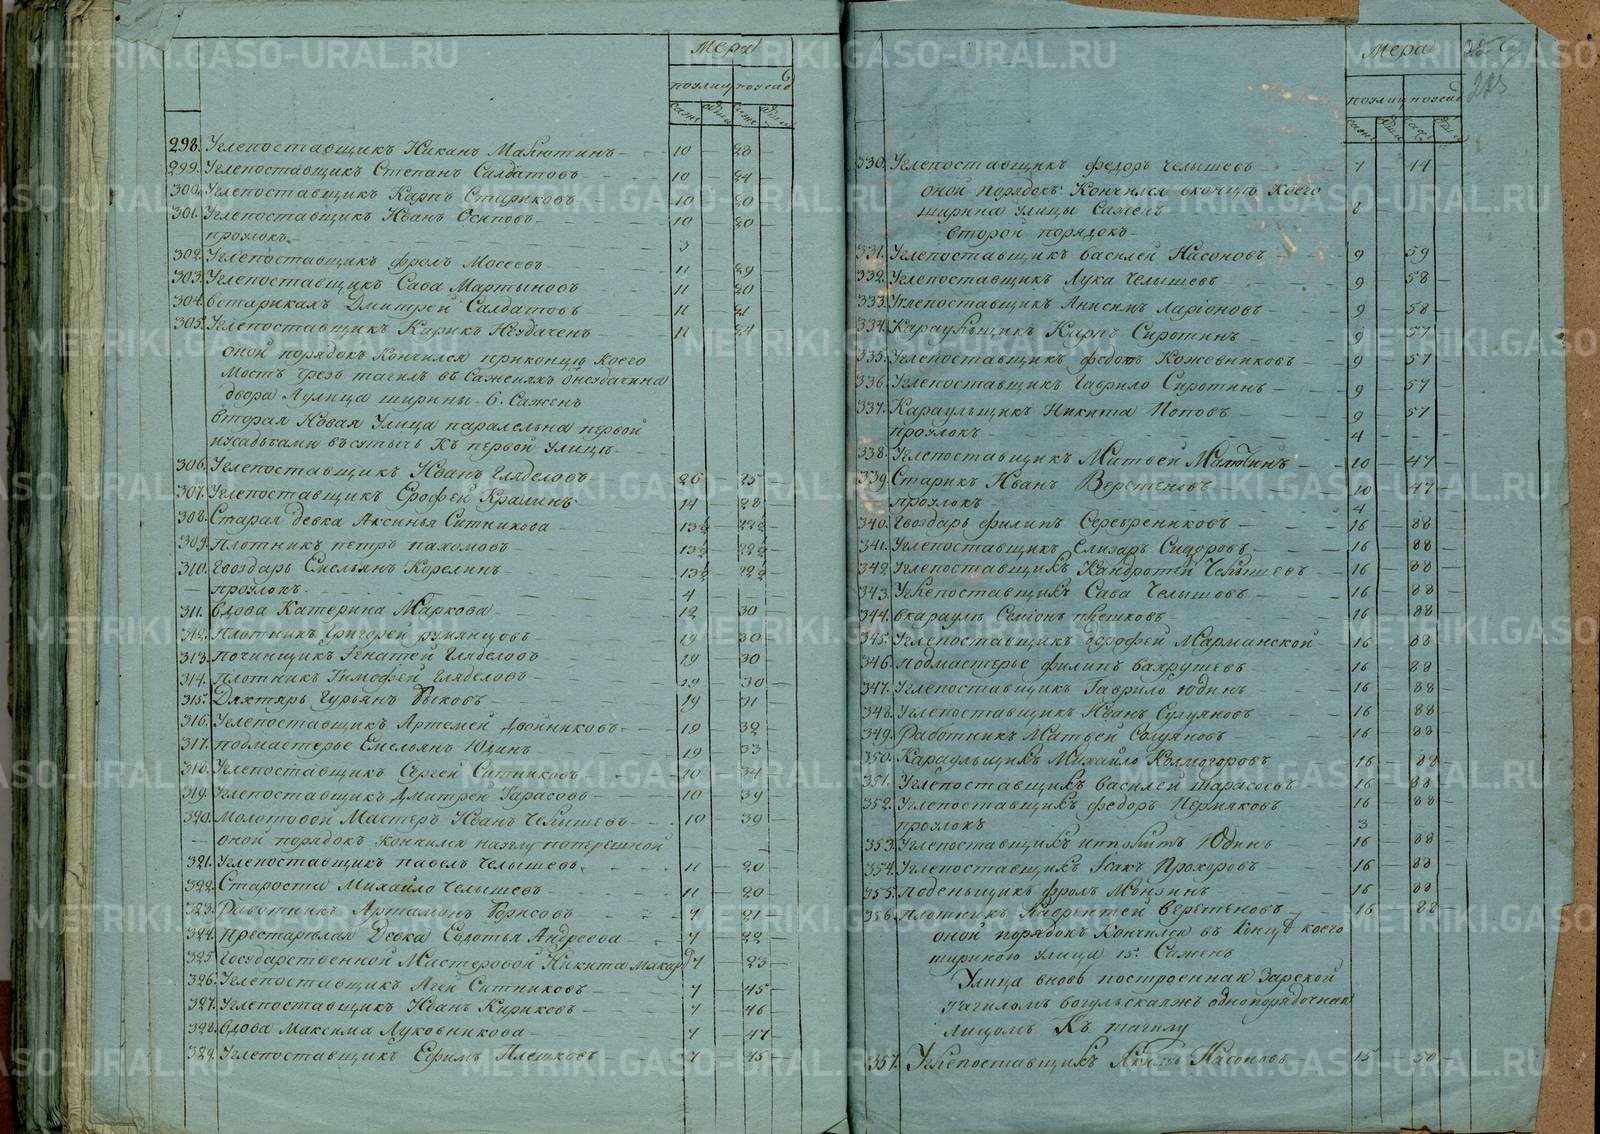 Мера
по улиц по усад
саже арши саже арши
298. Углепоставщикъ Никан Малютинъ 10 28
299. Углепоставщикъ Степанъ Салдатовъ 10 24
300. Углепоставщикъ Карпъ Стариковъ 10 20
301. Углепоставщикъ Иванъ Осиповъ 10 20
проулокъ 3
302. Углепоставщикъ фролъ Мосеевъ 11 29
303. Углепоставщикъ Сава Мартыновъ 11 20
304. встарикахъ Дмитрей Салдатовъ 11 21
305. Углепоставщикъ Кирикъ Неудаченъ 11 24
оной порядокъ Кончился приконцѣ коего
Мостъ чрез тагилъ въ Саженяхъ
двора Аулица ширины 6. Сажен
вторая Новая Улица паралельна первой
иусадьбами въсутычь Къ первой улицѣ
306. Углепоставщикъ Иванъ Гляделовъ 26 25
307. Углепоставщикъ Ерофей Кралинъ 14 28
308. Старая девка Аксинья Ситникова 13½ 22½
309. Плотникъ петръ пахомовъ 13½ 22½
310. Гвоздарь Емельянъ Корелинъ 13½ 22½
проулокъ 4
311. вдова Катерина Маркова 12 30
312. Плотникъ Григорей румянцовъ 19 30
313. Починщикъ Игнатей Гляделовъ 19 30
314. плотникъ Тимофей Гляделовъ 19 30
315. Дяхтярь Гурьянъ Быковъ 19 31
316. Углепоставщикъ Артемей Двойниковъ 19 32
317. подмастерье Емельянъ Юдинъ 19 33
318. Углепоставщикъ Сергей Ситниковъ 10 34
319. Углепоставщикъ Дмитрей Тарасовъ 10 39
320. Молотовой Мастеръ Иванъ Челышевъ 10 39
оной порядокъ кончился
321. Углепоставщикъ павелъ Челышевъ 11 20
322. Староста Михайло Челышевъ 11 20
323. Работникъ Артамонъ Борисовъ 7 21
324. престарелая Девка Евдотья Андреева 7 22
325 Государственной Мастеровой Никита Макар 7 23
326. Углепоставщикъ Агей Ситниковъ 7 45
327. Углепоставщикъ Иванъ Кириковъ 7 46
328. вдова Максима Луковникова 7 47
329. Углепоставщикъ Ефимъ Плешковъ 7 45
Мера
по улиц по усад
саже арши саже арши
330. Углепоставщикъ федоръ Челышевъ 7 44
оной порядокъ Кончился вконцѣ коего
ширина улицы Сажен
второй порядокъ
331. Углепоставщикъ василей Насоновъ 9 59
332. Углепоставщикъ Лука Челышевъ 9 58
333. Углепоставщикъ Анисимъ Ларионовъ 9 58
334. Караульщикъ Карпъ Сиротинъ 9 57
335. Углепоставщикъ федотъ Кожевниковъ 9 57
336. Углепоставщикъ Гаврило Сиротинъ 9 57
337. Караульщикъ Никита Поповъ 9 57
проулокъ 4
338. Углепоставщикъ Матвей Малютинъ 10 47
339. Старикъ Иванъ Веретеновъ 10 47
проулокъ 4
340. Гвоздарь филипъ Серебрениковъ 16 88
341. Углепоставщикъ Елизаръ Сидоровъ 16 88
342. Углепоставщикъ Кандротей Челышевъ 16 88
343. Углепоставщикъ Сава Челышовъ 16 88
344. вкараулѣ Семионъ плешковъ 16 88
345. Углепоставщикъ дорофей Марманской 16 88
346. подмастерье филипъ вахрушевъ 16 88
347. Углепоставщикъ Гаврило юдинъ 16 88
348. Углепоставщикъ Иванъ Сулуяновъ 16 88
349. Работникъ Матвей Солуяновъ 16 88
350. Караульщикъ Михайло Колмогоровъ 16 88
351. Углепоставщикъ василей тарасовъ 16 88
352. Углепоставщикъ федоръ Пермяковъ 16 88
проулокъ 3
353. Углепоставщикъ ипполитъ Юдинъ 16 88
354. Углепоставщикъ Исакъ Прохоровъ 16 88
355. поденьщикъ фролъ 16 88
356. плотникъ Лаврентей веретеновъ 16 88
оной порядокъ Кончился въ концѣ коего
шириною улица 15. Сажень
Улица вновь построенная Зарекой
Тагиломъ вогульскаяжъ однопорядочная
лицомъ Къ тагилу
357. Углепоставщикъ Насоновъ 15 50